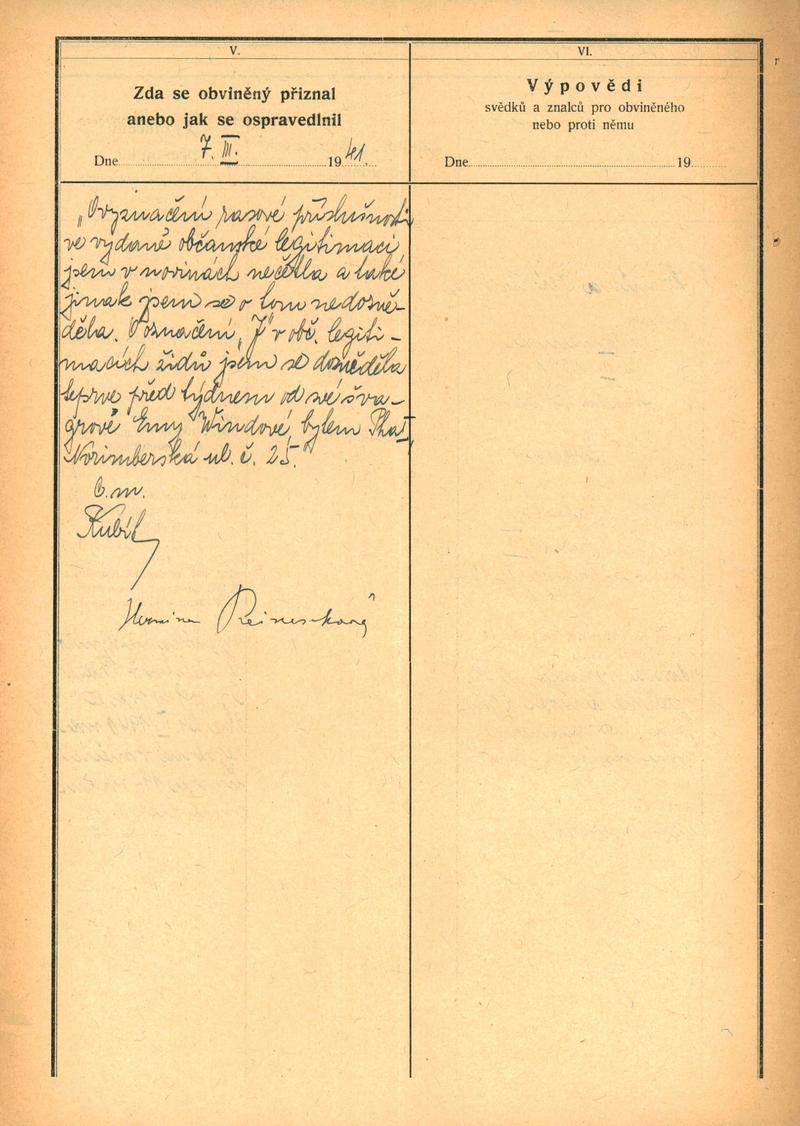 V.
Zda se obviněný přiznal
anebo jak se ospravedlnil
Dne 7. III. 1941.
„O vyznačení rasové příslušnosti
ve vydané občanské legitimaci
jsem v novinách nečetla a také
jinak jsem se o tom nedozvě-
děla. O označení „J" v obč. legiti-
macích židů jsem se dozvěděla
teprve před týdnem od své šva-
grové Emy Windové, bytem Praha I
Norimberská ul. č. 25."
Kubíč
Hermina
VI.
Výpovědi
svědků a znalců pro obviněného
nebo proti němu
Dne 19